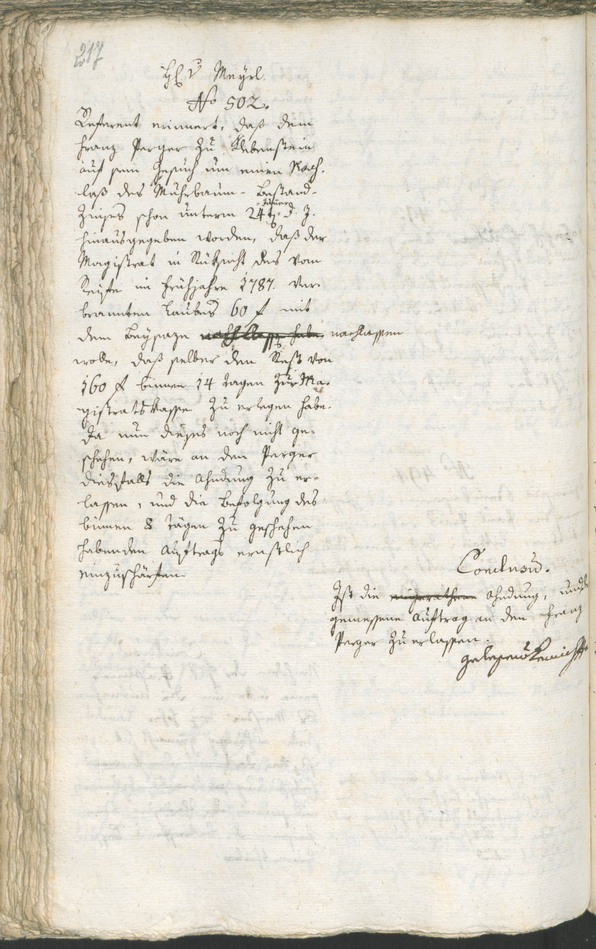 217
H. v. Meyrl
No 502.
Referent erinnert, daß dem
Franz Perger zu Klebenstein
auf sein Gesuch um einen Nach-
laß des Mühebaum-Bestand-
Zinses schon unterm 24t Jänner d. J.
hinausgegeben worden, daß der
Magistrat in Rüksicht des vom
Reife im Frühjahre 1787 ver-
brannten Laubes 60 f mit
dem Beysaze nachlassen
wolle, daß selber den Rest von
160 f binnen 14 Tagen zur Ma-
gistratskasse zu erlegen habe.
Da nun dieses noch nicht ge-
schehen, wäre an den Perger
diesfalls die Ahndung zu er-
lassen, und die Befolgung des
binnen 8 Tagen zu geschehen
habenden Auftrags ernstlich
einzuschärfen.
Conclusum.
Ist die Ahndung, und
gemessene Auftrag an den Franz
Perger zu erlassen.